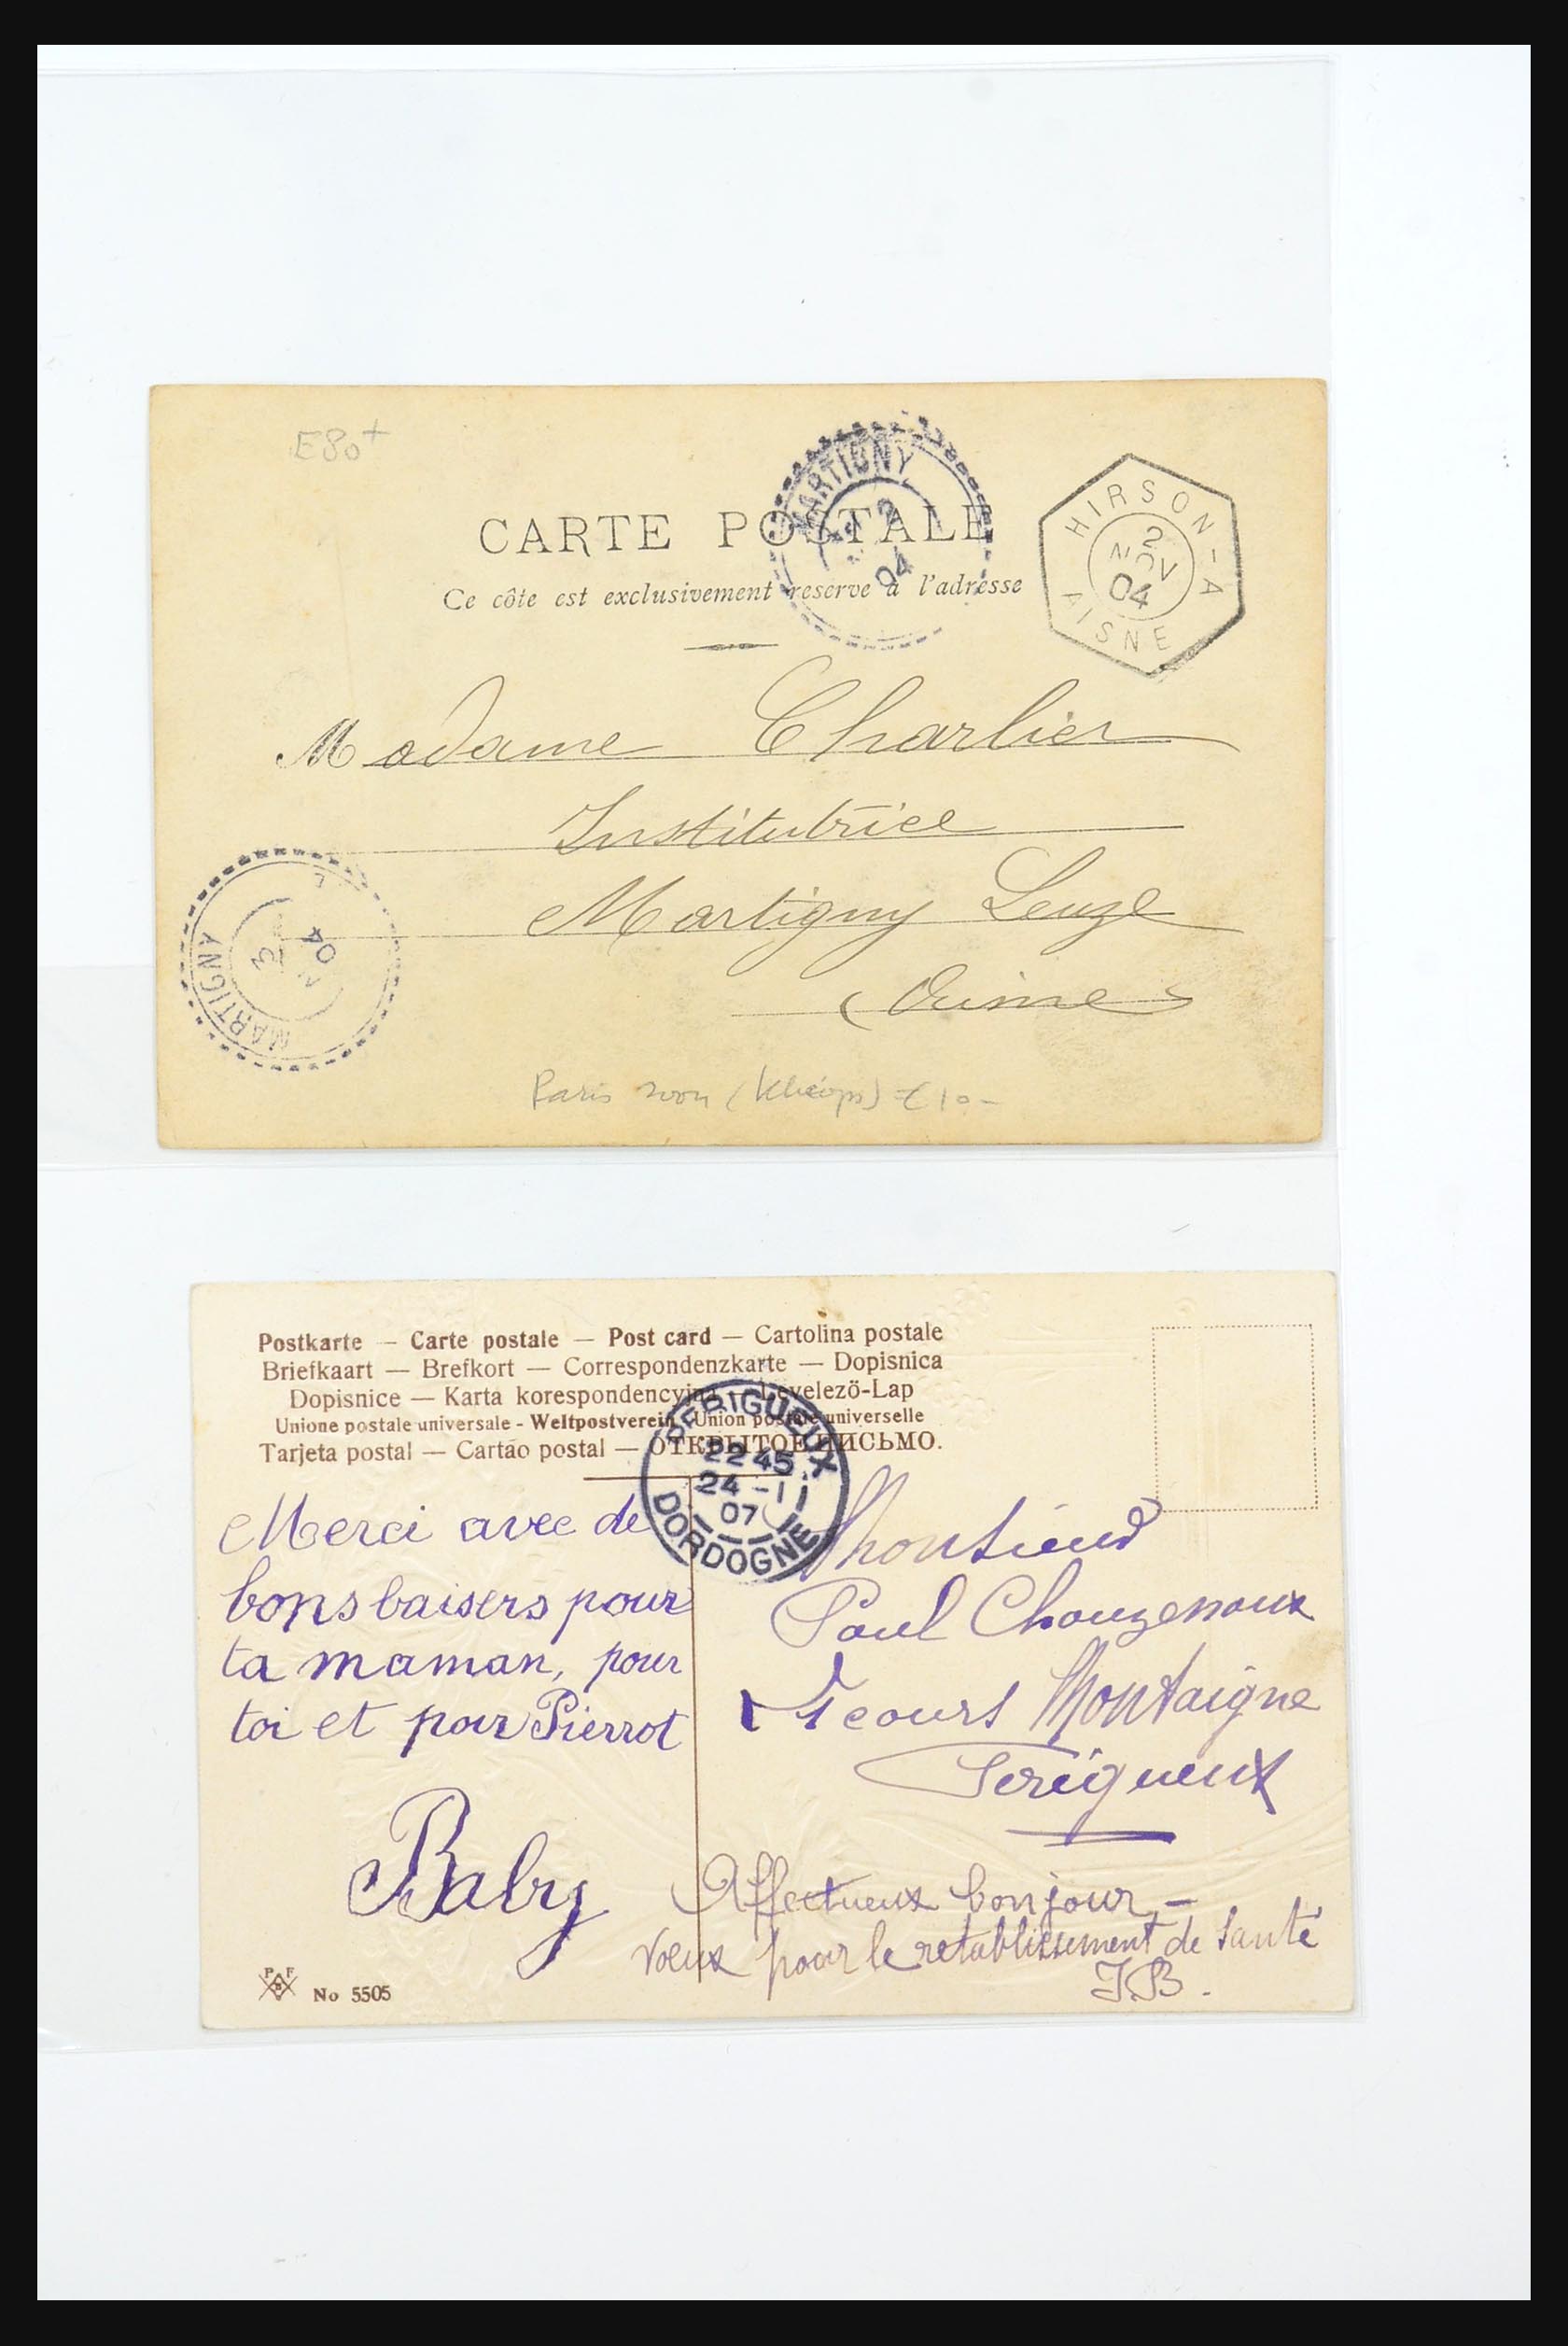 E80+
CARTE POSTALE
Ce côte est exclusivement reserve à l'adresse
MARTIGNY
2
04
HIRSON-A
2
NOV
04
AISNE
Madame Charlier
Institutrice
Martigny Leuze
(Aisne)
MARTIGNY
3
04
Paris 2004 (Khéops) € 10-
Postkarte — Carte postale — Post card — Cartolina postale
Briefkaart — Brefkort — Correspondenzkarte — Dopisnica
Dopisnice — Karta korespondencyjna — Levelezö-Lap
Unione postale universale - Weltpostverein - Union postale universelle
Tarjeta postal — Cartão postal — ОТКРЫТОЕ ПИСЬМО.
PERIGUEUX
22 45
24 -1
07
DORDOGNE
Merci avec de
bons baisers pour
ta maman, pour
toi et pour Pierrot
Baby
Monsieur
Paul Chouzenoux
cours Montaigne
Perigueux
Affectueux bonjour -
Voeux pour le retablissement de santé
J.B.
P F
B
No 5505